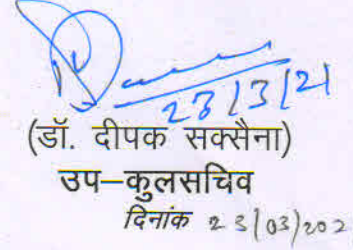 23/3/21
(डॉ. दीपक सक्सैना)
उप–कुलसचिव
दिनांक 23/03/202